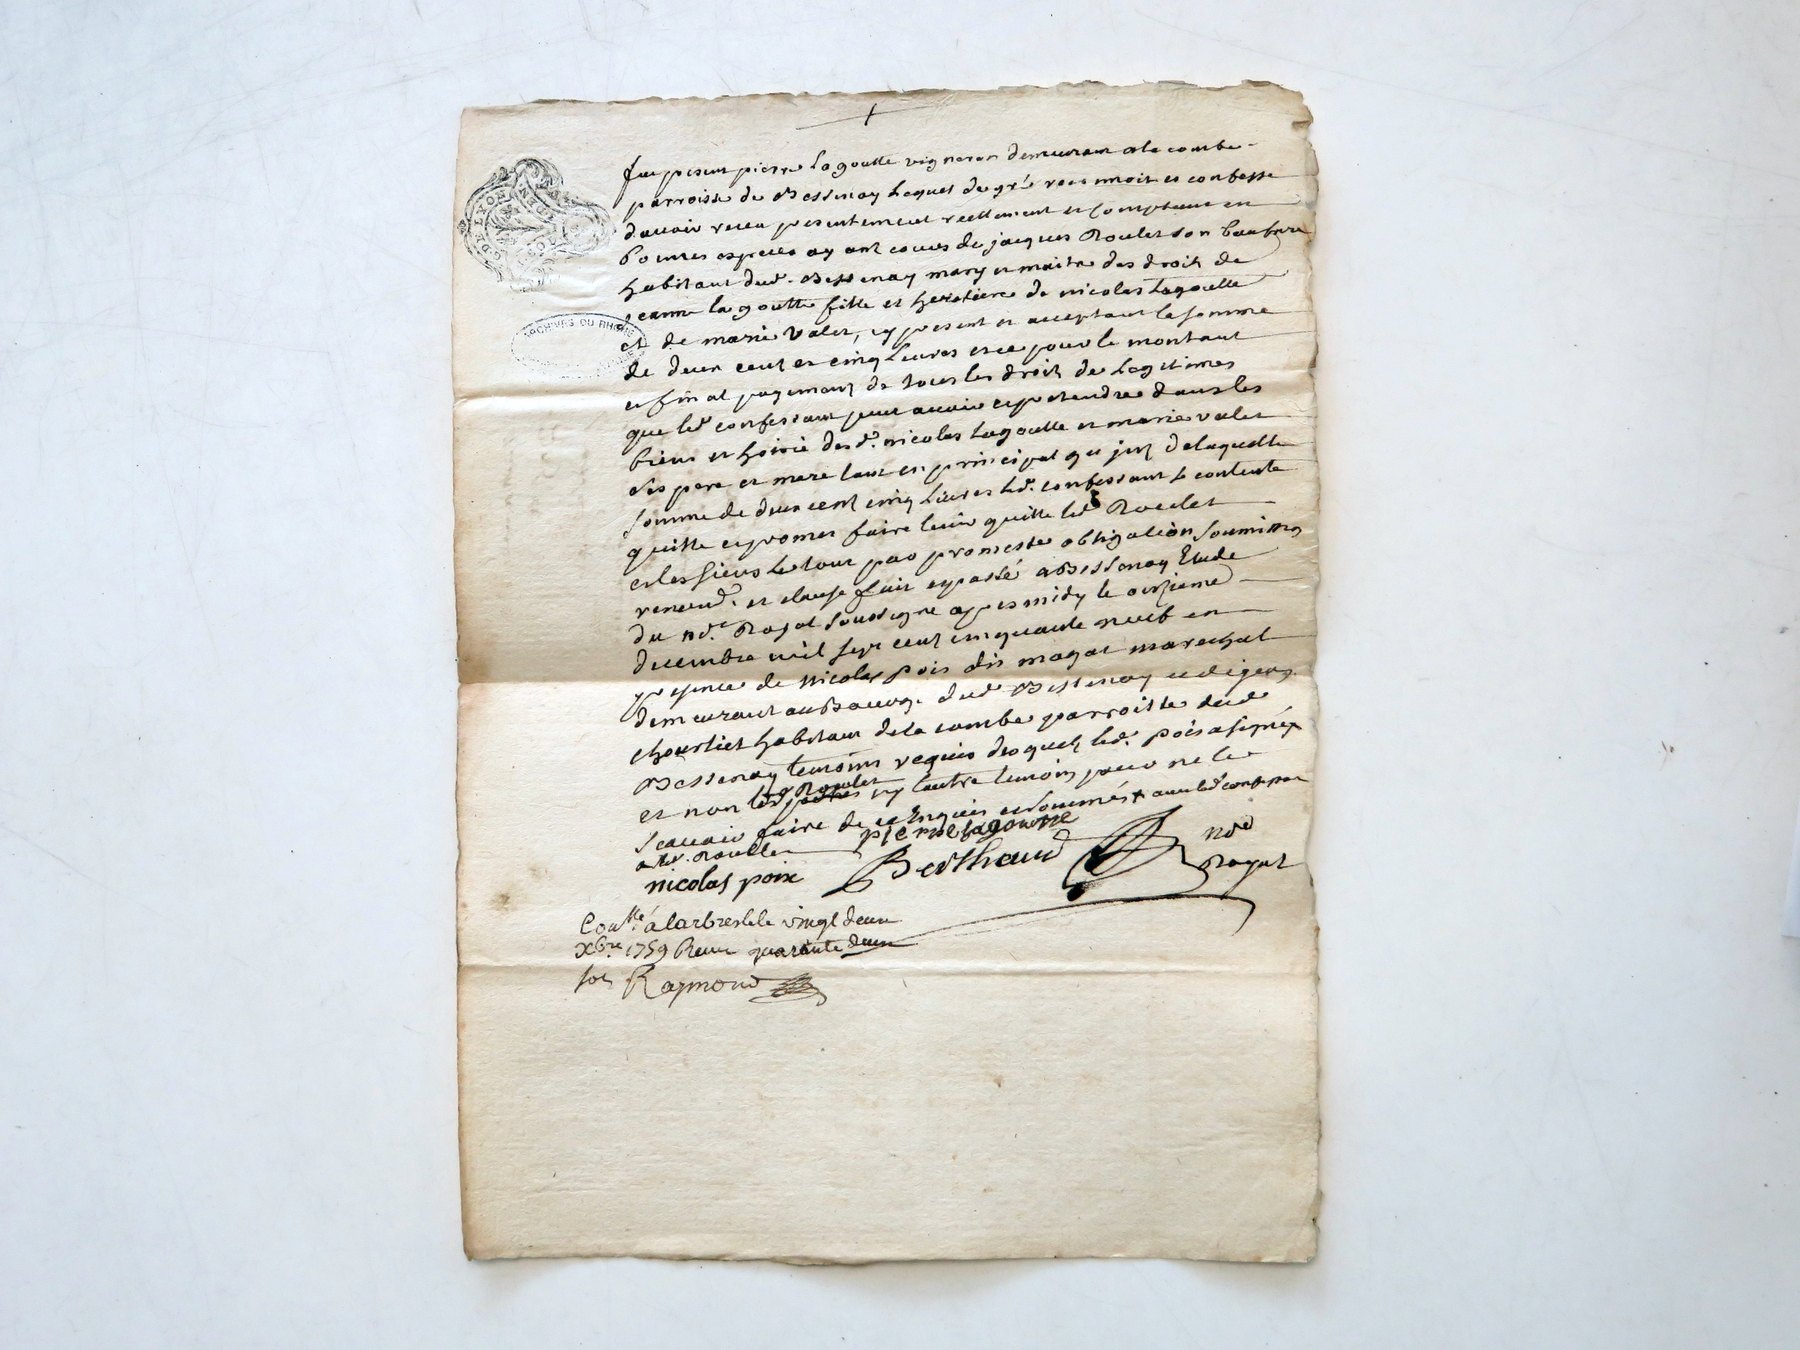 fut present pierre Lagoutte vigneron demeurant a la combe
parroisse de Bessenay Lequel de gré reconnoit et confesse
davoir receu presentement reellement et comptant en
bonnes especes ayant cours de jacques Roulet son beaufrere
habitant dud. Bessenay mary et maitre des droits de
jeanne la goutte fille et heretiere de nicolas Lagoutte
et de marie Valet, cy present et acceptant la somme
de deux cent et cinq Livres et ce pour le montant
et final payement de tous les droits de Legitimes
que led confessant peut avoir et pretendre dans les
biens et hoirie desd. nicolas Lagoutte et marie valet
ses pere et mere tant en principal qu de laquelle
somme de deux cent cinq Livres led. confessant se contente
quitte et promet faire tenir quitte led Roulet
et les siens Le tout par promesse obligation soumission
renond. et clause fait et passé a Bessenay Etude
du nd. Royal soussigne apres midy le onzieme
decembre mil sept cent cinquante neuf en
presence de Nicolas pois dis magat marechal
demeurant au Bourg dud Bessenay et
habitant de la combe parroisse dud
Bessenay temoins requis desquels led. pois a signé
et non led Roulet ny lautre temoin pour ne le
scavoir faire de ce Enquis et sommés avec led confessant
a led. Roullet pierre lagoutte
nicolas poix Berthaud nd
Royal
Conlle a larbresle le vingt deux
Xbre 1759 Receu quarante deux
sols Raymond
G. DE LYON
ARCHIVES DU RHONE